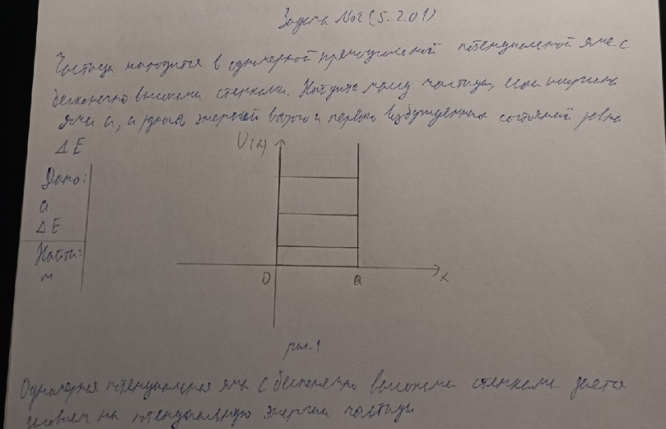 Задача №2 (5.201)
Частица находится в одномерной прямоугольной потенциальной яме с
бесконечно высокими стенками. Найдите массу частицы, если ширина
ямы a, а разница энергий второго и первого возбужденных состояний равна
ΔE
U(x)
Дано:
a
ΔE
Найти:
m
0 a x
рис. 1
Одномерная потенциальная яма с бесконечно высокими стенками дается
условием на потенциальную энергию частицы